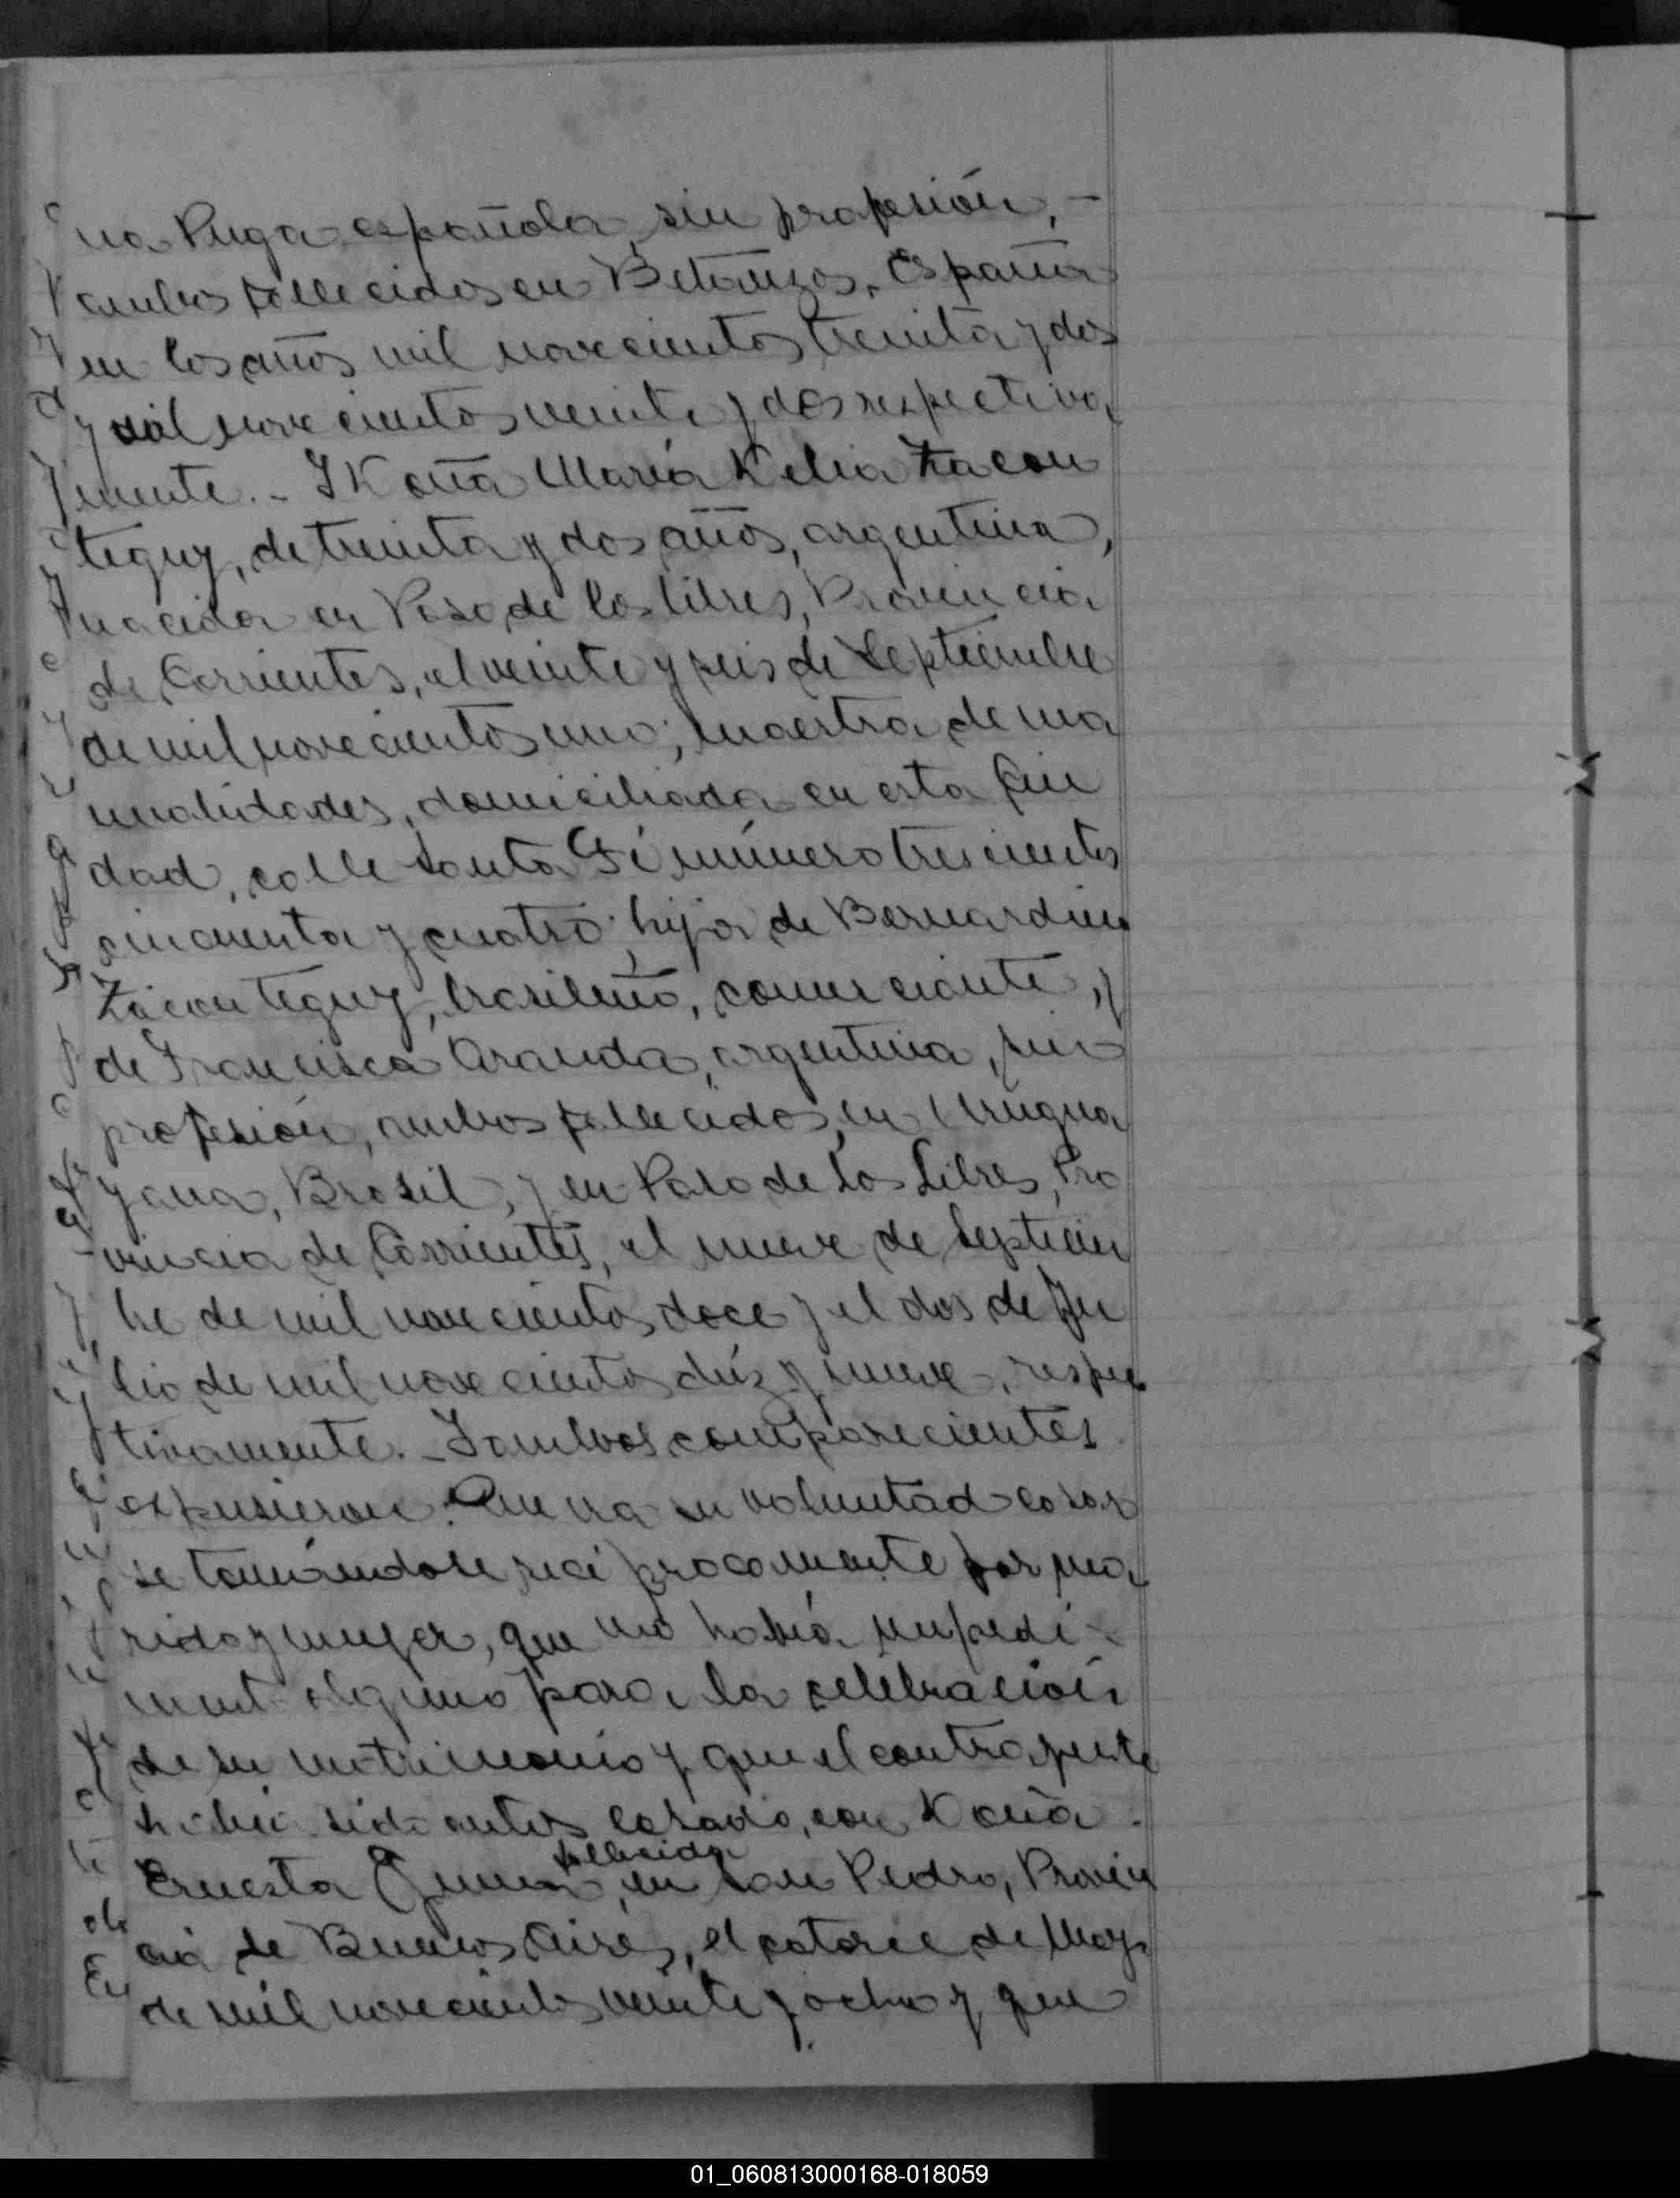 na Puga, española, sin profesión, -
ambos fallecidos en Betanzos, España
en los años mil novecientos treinta y dos
y mil novecientos veinte y dos respectiva
mente.- Y Doña María Delia
teguy, de treinta y dos años, argentina,
nacida en Paso de los Libres, Provincia
de Corrientes, el veinte y seis de Septiembre
de mil novecientos uno; maestra de ma
nualidades, domiciliada en esta Ciu
dad, calle Santa Fé número trescientos
cincuenta y cuatro; hija de Bernardino
brasileño, comerciante, y
de Francisca Aranda, argentina, sin
profesión, ambos fallecidos en Urugua
yana, Brasil, y en Paso de los Libres, Pro
vincia de Corrientes, el nueve de Septiem
bre de mil novecientos doce y el dos de Ju
lio de mil novecientos diez y nueve, respec
tivamente.- Y ambos comparecientes
expusieron: Que era su voluntad casar
se tomándose recíprocamente por ma
rido y mujer, que no había impedi-
mento alguno para la celebración
de su matrimonio y que el contrayente
había sido antes casado, con Doña
fallecida
Ernesta en San Pedro, Provin
cia de Buenos Aires, el catorce de Mayo
de mil novecientos veinte y ocho y que
01_060813000168-018059